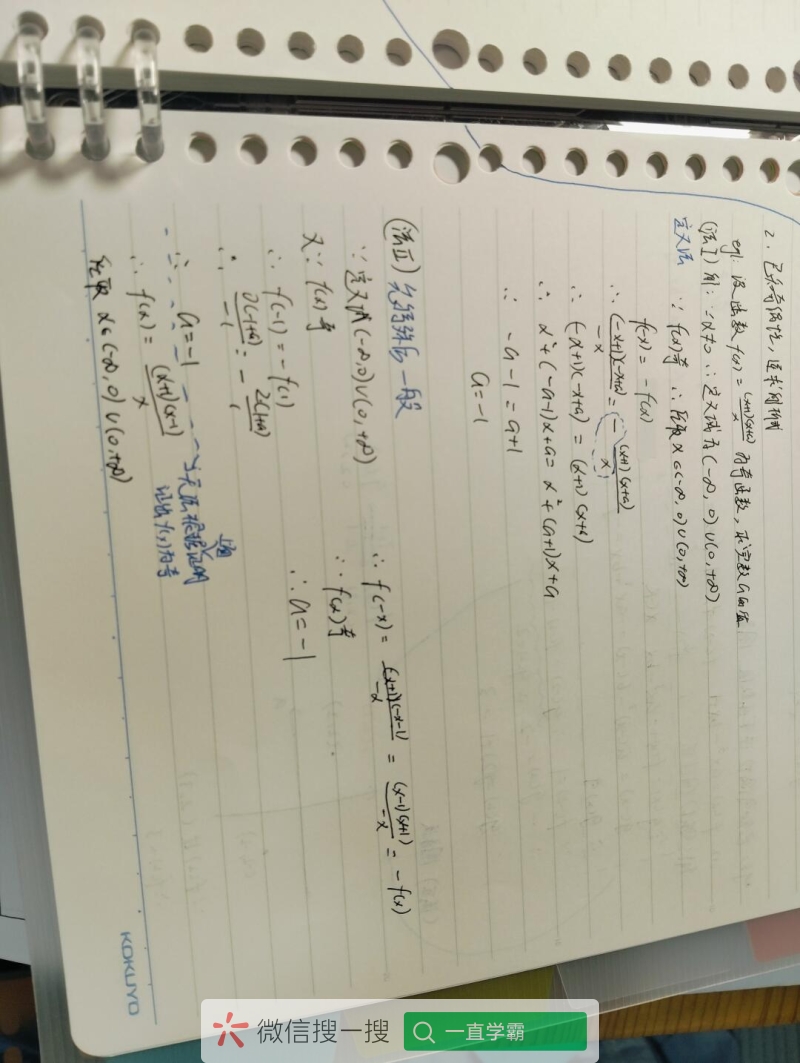 2. 已知奇偶性，逆求解析式
eg1: 设函数 f(x) = (x+1)(x+a)/x 为奇函数, 求实数 a 的值
(法I) 解: ∵ x≠0 ∴ 定义域为 (-∞, 0) ∪ (0, +∞)
定义法 ∵ f(x)奇 ∴ 任取 x∈(-∞, 0) ∪ (0, +∞)
f(-x) = -f(x)
∴ (-x+1)(-x+a)/-x = - (x+1)(x+a)/x
∴ (-x+1)(-x+a) = (x+1)(x+a)
∴ x² + (-a-1)x + a = x² + (a+1)x + a
∴ -a-1 = a+1
a = -1
(法II) 先特殊后一般
∵ 定义域 (-∞, 0) ∪ (0, +∞)
又∵ f(x)奇
∴ f(-1) = -f(1)
∴ 0(-1+a)/-1 = - 2(1+a)/1
∴ a = -1 无法根据证明
证出 f(x)为奇
∴ f(x) = (x+1)(x-1)/x
任取 x∈(-∞, 0) ∪ (0, +∞)
∴ f(-x) = (-x+1)(-x-1)/-x = (x-1)(x+1)/-x = -f(x)
∴ f(x)奇
∴ a = -1
KOKUYO
微信搜一搜 一直学霸